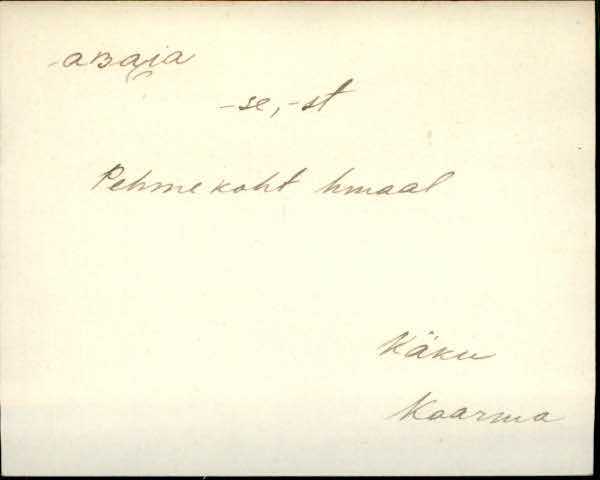 aʙaja
-se, -st
Pehme koht hmaal
Käku
Kaarma